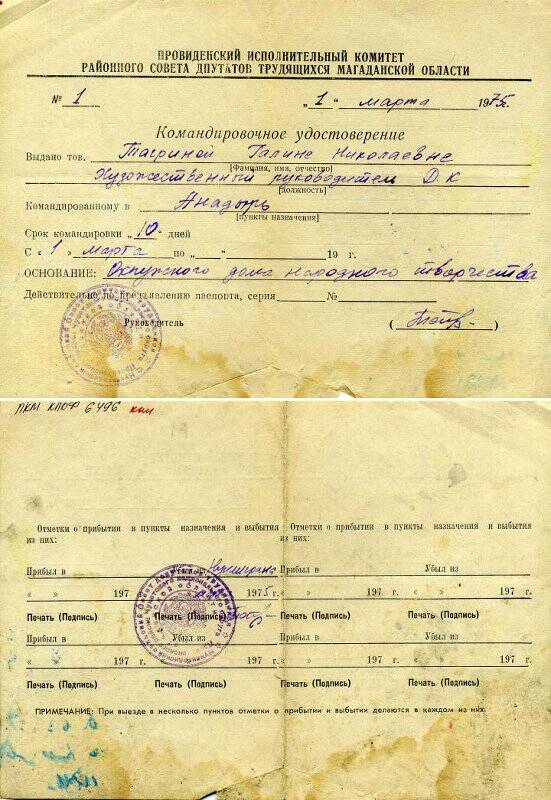 ПРОВИДЕНСКИЙ ИСПОЛНИТЕЛЬНЫЙ КОМИТЕТ
РАЙОННОГО СОВЕТА ДПУТАТОВ ТРУДЯЩИХСЯ МАГАДАНСКОЙ ОБЛАСТИ
№ 1 „1" марта 1975г.
Командировочное удостоверение
Выдано тов. Тагриной Галине Николаевне
[Фамилия, имя, отчество]
Художественный руководител Д.К
[должность]
Командированному в Анадырь
[пункты назначения]
Срок командировки „10" дней
С «1» марта по „ " 19 г.
ОСНОВАНИЕ: Окружного дома народного творчества
Действительно по предъявлению паспорта, серия №
Руководитель ( )
ПКМ КПОФ 6496 кпи
Отметки о прибытии в пункты назначения и выбытия из них:
Отметки о прибытии в пункты назначения и выбытия из них:
Прибыл в
Прибыл в Убыл из
« » 197 1975 г.
« » 197 г. « » 197 г.
Печать (Подпись) Печать (Подпись)
Печать (Подпись) Печать (Подпись)
Прибыл в Убыл из
Прибыл в Убыл из
« » 197 г. « » 197 г.
« » 197 г. « » 197 г.
Печать (Подпись) Печать (Подпись)
Печать (Подпись) Печать (Подпись)
ПРИМЕЧАНИЕ: При выезде в несколько пунктов отметки о прибытии и выбытии делаются в каждом из них.